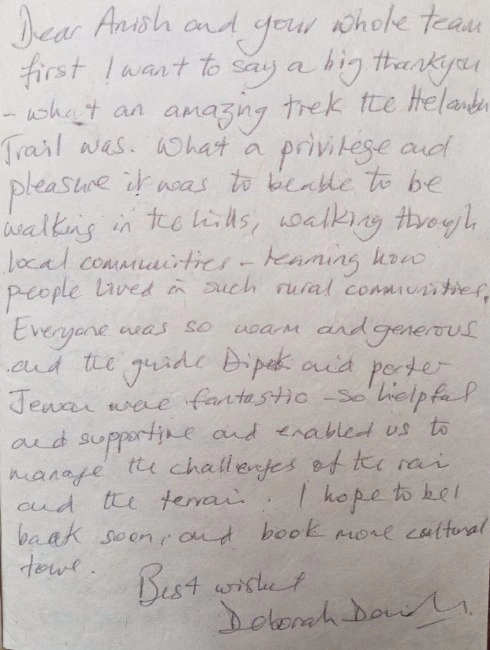 Dear Anish and your whole team
first I want to say a big thankyou
- what an amazing trek the Helambu
Trail was. What a privilege and
pleasure it was to be able to be
walking in the hills, walking through
local communities - learning how
people lived in such rural communities.
Everyone was so warm and generous
and the guide Dipak and porter
Jewan were fantastic - so helpful
and supportive and enabled us to
manage the challenges of the rain
and the terrain. I hope to be
back soon, and book more cultural
Best wishes
Deborah